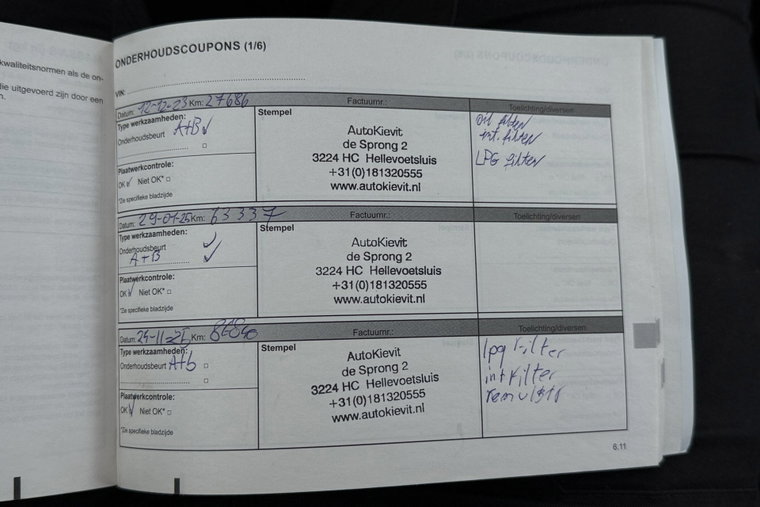 kwaliteitsnormen als de on-
die uitgevoerd zijn door een
n.
ONDERHOUDSCOUPONS (1/6)
VIN:
Datum: 12-12-23 Km: 27686 Factuurnr.: Toelichting/diversen
Type werkzaamheden:
Onderhoudsbeurt A+B
Plaatwerkcontrole:
OK Niet OK*
*Zie specifieke bladzijde
Stempel
AutoKievit
de Sprong 2
3224 HC Hellevoetsluis
+31(0)181320555
www.autokievit.nl
oil filter
int. filter
LPG filter
Datum: 29-01-25 Km: 63337 Factuurnr.: Toelichting/diversen
Type werkzaamheden:
Onderhoudsbeurt
A+B
Plaatwerkcontrole:
OK Niet OK*
*Zie specifieke bladzijde
Stempel
AutoKievit
de Sprong 2
3224 HC Hellevoetsluis
+31(0)181320555
www.autokievit.nl
Datum: Km: Factuurnr.: Toelichting/diversen
Type werkzaamheden:
Onderhoudsbeurt A+b
Plaatwerkcontrole:
OK Niet OK*
*Zie specifieke bladzijde
Stempel
AutoKievit
de Sprong 2
3224 HC Hellevoetsluis
+31(0)181320555
www.autokievit.nl
lpg filter
int filter
6.11